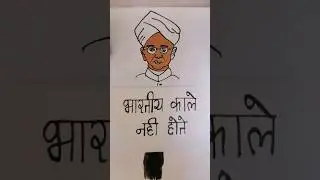 भारतीय काले
नही होते